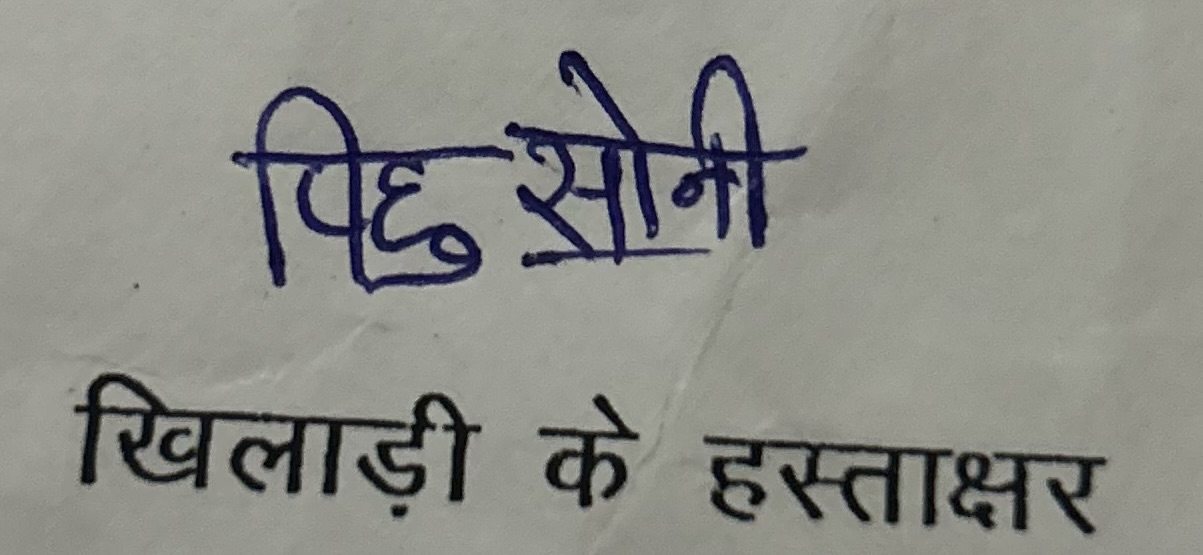 पिहु सोनी
खिलाड़ी के हस्ताक्षर